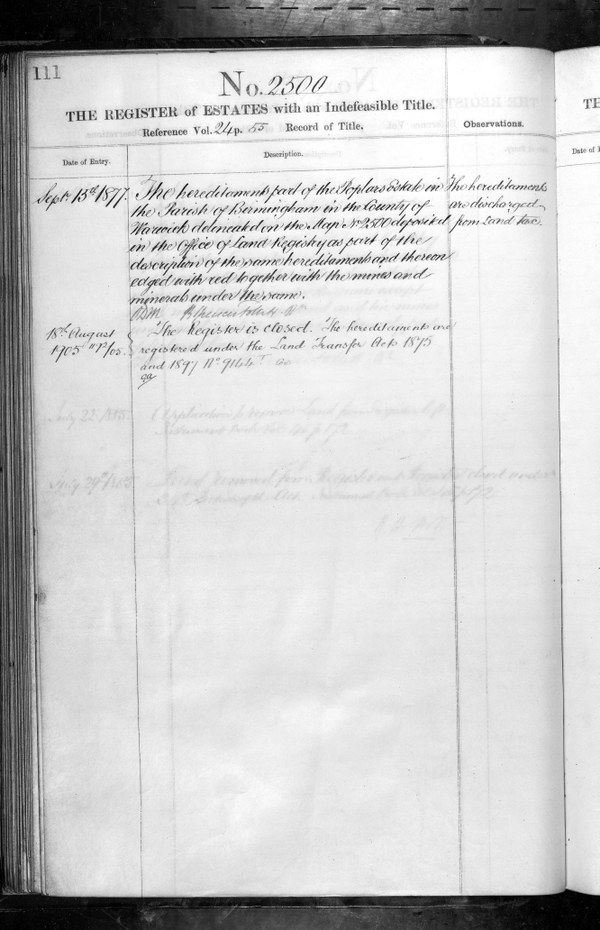 111
No. 2500
THE REGISTER of ESTATES with an Indefeasible Title.
Reference Vol. 24 p. 55 Record of Title.
Observations.
Date of Entry.
Description.
Septr. 15th 1877.
The hereditaments part of the Poplars Estate in
the Parish of Birmingham in the County of
Warwick delineated on the Map No 2500 deposited
in the Office of Land Registry as part of the
description of the same hereditaments and thereon
edged with red together with the mines and
minerals under the same.
The hereditaments
are discharged
from Land tax.
18th August
1905
The Register is closed. The hereditaments are
registered under the Land Transfer Acts 1875
and 1897 No 9164
TH
Date of E